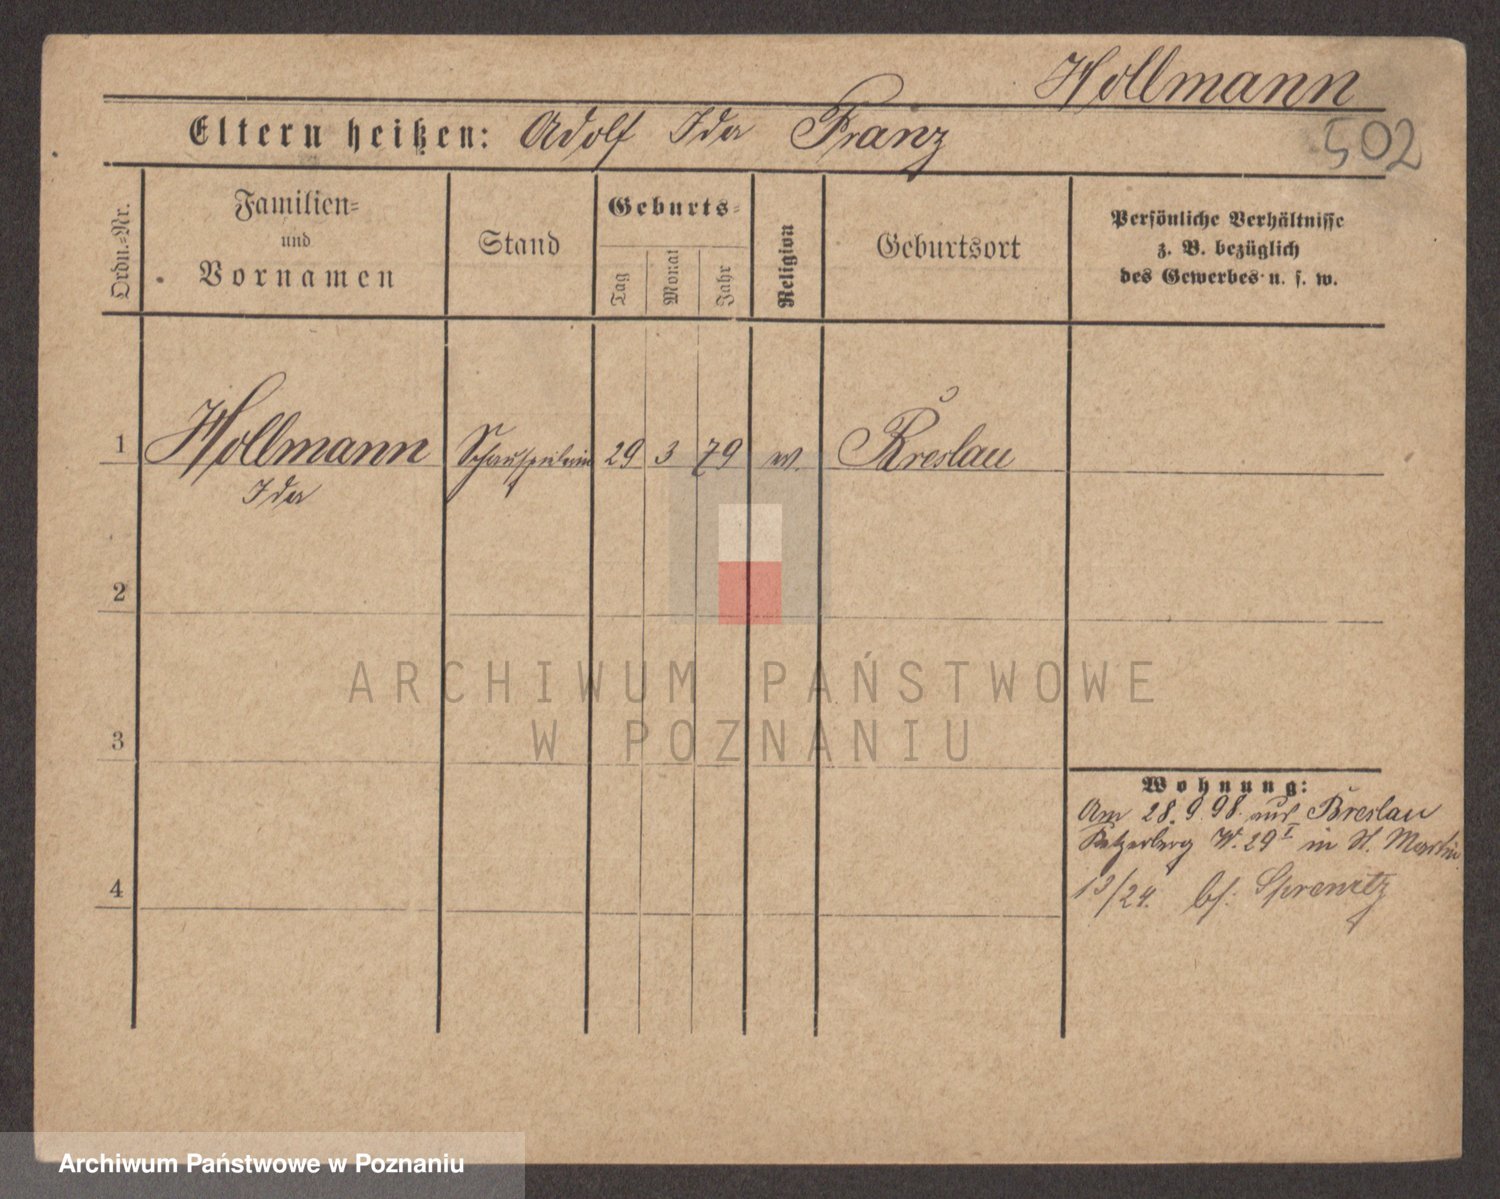 Hollmann
502
Eltern heißen: Adolf Ida Franz
Ordn.=Nr.
Familien=
und
Vornamen
Stand
Geburts=
Tag
Monat
Jahr
Religion
Geburtsort
Persönliche Verhältnisse
z. B. bezüglich
des Gewerbes u. s. w.
1 Hollmann Schauspielerin 29 3 79 Breslau
Ida
2
3
4
Wohnung:
Am 28.9.98. aus Breslau
29 I in St. Martin
13/24. bei:
ARCHIWUM PAŃSTWOWE
W POZNANIU
Archiwum Państwowe w Poznaniu